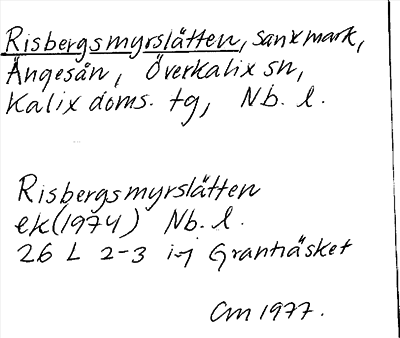 Risbergsmyrslätten, sankmark,
Ängesån, Överkalix sn,
Kalix doms. tg, Nb. l.
Risbergsmyrslätten
ek(1974) Nb. l.
26 L 2-3 i-j Granträsket
CM 1977.